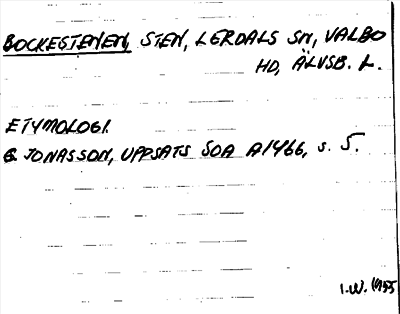 BOCKESTENEN, STEN, LERDALS SN, VALBO
HD, ÄLVSB. L.
ETYMOLOGI.
G. JONASSON, UPPSATS SOA A1466, s. 5.
I.W. 1955